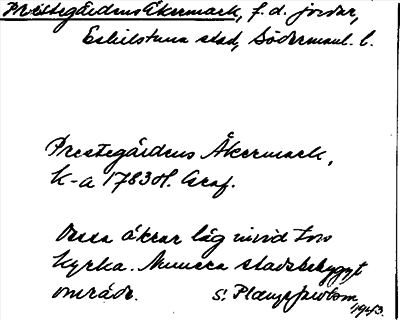 Prestegårdens Åkermark, f.d. jordar,
Eskilstuna stad, Söderманl. l.
Prestegårdens Åkermark,
K-a 1783 H. Graf.
Dessa åkrar låg invid Fors
kyrka. Numera stadsbebyggt
område. S.
1943.